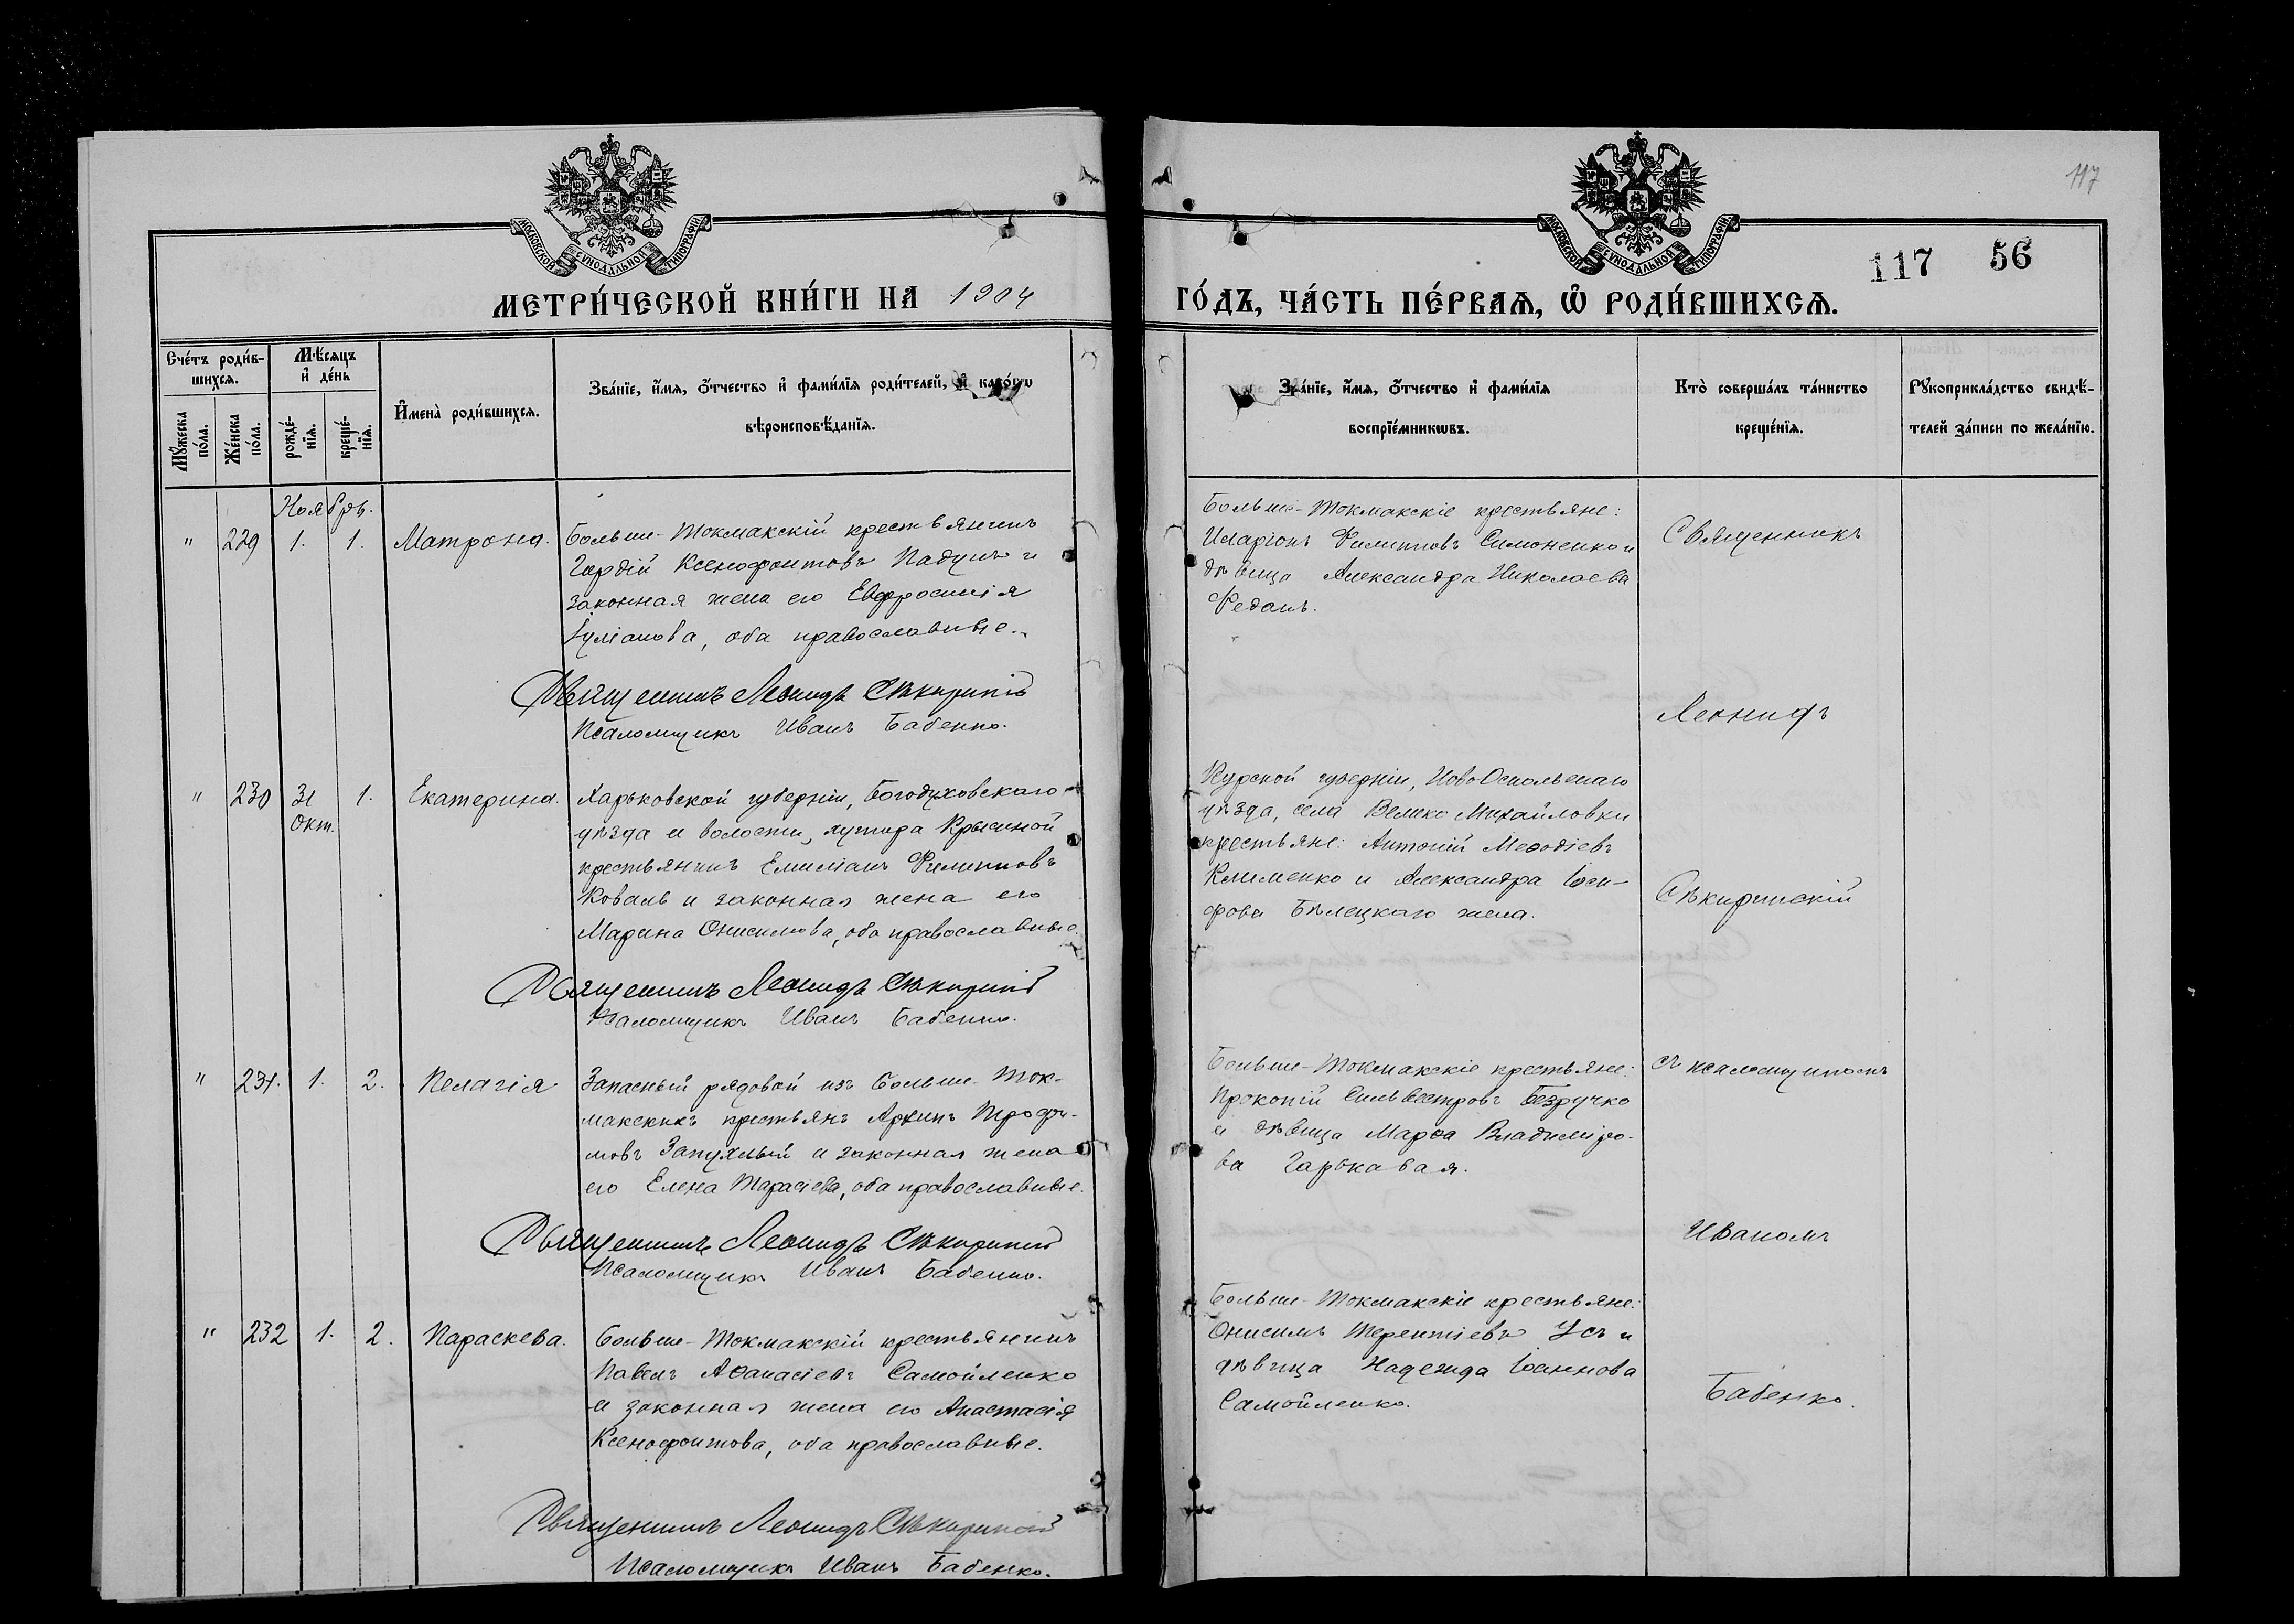 117
117 56
МОСКОВСКОЙ СѴНОДАЛЬНОЙ ТИПОГРАФІИ
МОСКОВСКОЙ СѴНОДАЛЬНОЙ ТИПОГРАФІИ
МЕТРИ́ЧЕСКОЙ КНИ́ГИ НА 1904
ГО́ДЪ, ЧА́СТЬ ПЕ́РВАѦ, Ѡ҆ РОДИ́ВШИХСѦ.
Сче́тъ роди́в-
шихсѧ.
Мѣ́сѧцъ
и҆ де́нь
Мꙋ́жеска
по́ла.
Же́нска
по́ла.
рожде́-
нїѧ.
креще́-
нїѧ.
И҆мена̀ роди́вшихсѧ.
Зва́нїе, и҆́мѧ, ѻ҆́тчество и҆ фами́лїѧ роди́телей, и҆ како́гѡ
вѣроисповѣ́данїѧ.
Зва́нїе, и҆́мѧ, ѻ҆́тчество и҆ фами́лїѧ
воспрїе́мникѡвъ.
Кто̀ соверша́лъ та́инство
креще́нїѧ.
Рꙋкоприкла́дство свидѣ́-
телей за́писи по жела́нїю.
Ноябрь.
" 229 1. 1. Матрона.
Больше-Токмакскій крестьянинъ
Гордій Ксенофонтовъ Падунъ и
законная жена его Евфросинія
Іуліанова, оба православные.
Священникъ Леонидъ Сѣкиринскій
Псаломщикъ Иванъ Бабенко.
Больше-Токмакскіе крестьяне:
Иларіонъ Филипповъ Симоненко и
дѣвица Александра Николаева
Федань.
Священникъ
Леонидъ
" 230 31 1. Екатерина.
Окт.
Харьковской губерніи, Богодуховскаго
уѣзда и волости, хутора Крысиной
крестьянинъ Емиліанъ Филипповъ
Коваль и законная жена его
Марина Онисимова, оба православные.
Священникъ Леонидъ Сѣкиринскій
Псаломщикъ Иванъ Бабенко.
Курской губерніи, Ново Оскольскаго
уѣзда, села Велико Михайловки
крестьяне: Антоній Меѳодіевъ
Клименко и Александра Іоси-
фова Бѣлецкаго жена.
Сѣкиринскій
" 231. 1. 2. Пелагія.
Запасный рядовой изъ Больше-Ток-
макскихъ крестьянъ Архипъ Трофи-
мовъ Запухлый и законная жена
его Елена Тарасіева, оба православные.
Священникъ Леонидъ Сѣкиринскій
Псаломщикъ Иванъ Бабенко.
Больше-Токмакскіе крестьяне:
Прокопій Сильвестровъ Безручко
и дѣвица Марѳа Владиміро-
ва Гарькавая.
съ псаломщикомъ
Иваномъ
" 232 1. 2. Параскева.
Больше-Токмакскій крестьянинъ
Павелъ Аѳанасіевъ Самойленко
и законная жена его Анастасія
Ксенофонтова, оба православные.
Священникъ Леонидъ Сѣкиринскій
Псаломщикъ Иванъ Бабенко.
Больше-Токмакскіе крестьяне:
Онисимъ Терентіевъ Усъ и
дѣвица Надежда Іоаннова
Самойленко.
Бабенко.